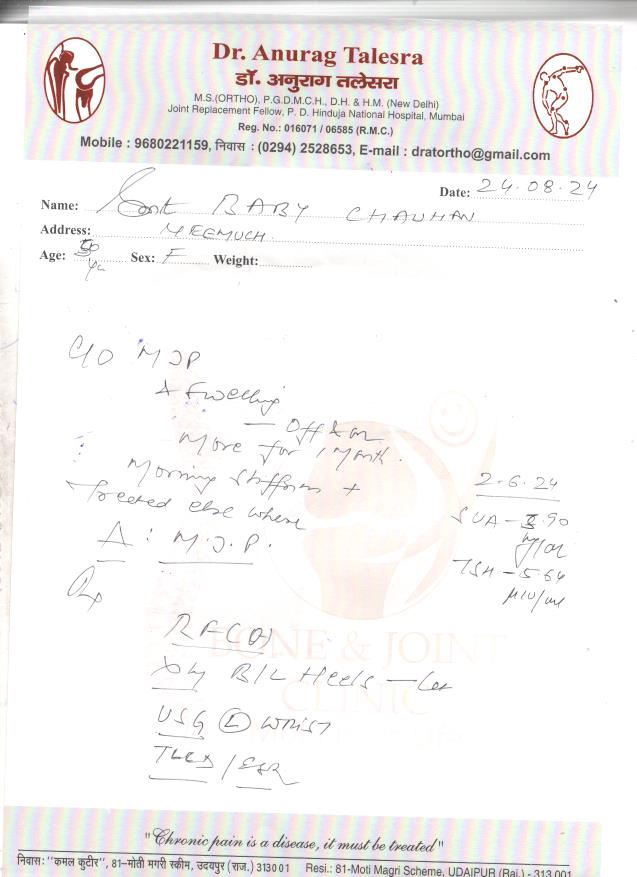 Dr. Anurag Talesra
डॉ. अनुराग तलेसरा
M.S.(ORTHO), P.G.D.M.C.H., D.H. & H.M. (New Delhi)
Joint Replacement Fellow, P. D. Hinduja National Hospital, Mumbai
Reg. No.: 016071 / 06585 (R.M.C.)
Mobile : 9680221159, निवास : (0294) 2528653, E-mail : dratortho@gmail.com
Date: 24.08.24
Name: BABY CHAUHAN
Address: NEEMUCH
Age: Sex: F Weight:
C/O MJP
Swelling
- Off & on
More for 1 Month.
Morning Stiffness +
Treated else where
2.6.24
SUA -
A : M.J.P.
TSH - 5.64
μIU/ml
Rx
RF(Q)
BONE & JOINT
CLINIC
B/L Heels - Lat
USG (L) WRIST
TLC, / ESR
"Chronic pain is a disease, it must be treated"
निवास: "कमल कुटीर", 81-मोती मगरी स्कीम, उदयपुर (राज.) 313001 Resi.: 81-Moti Magri Scheme, UDAIPUR (Raj.) - 313 001